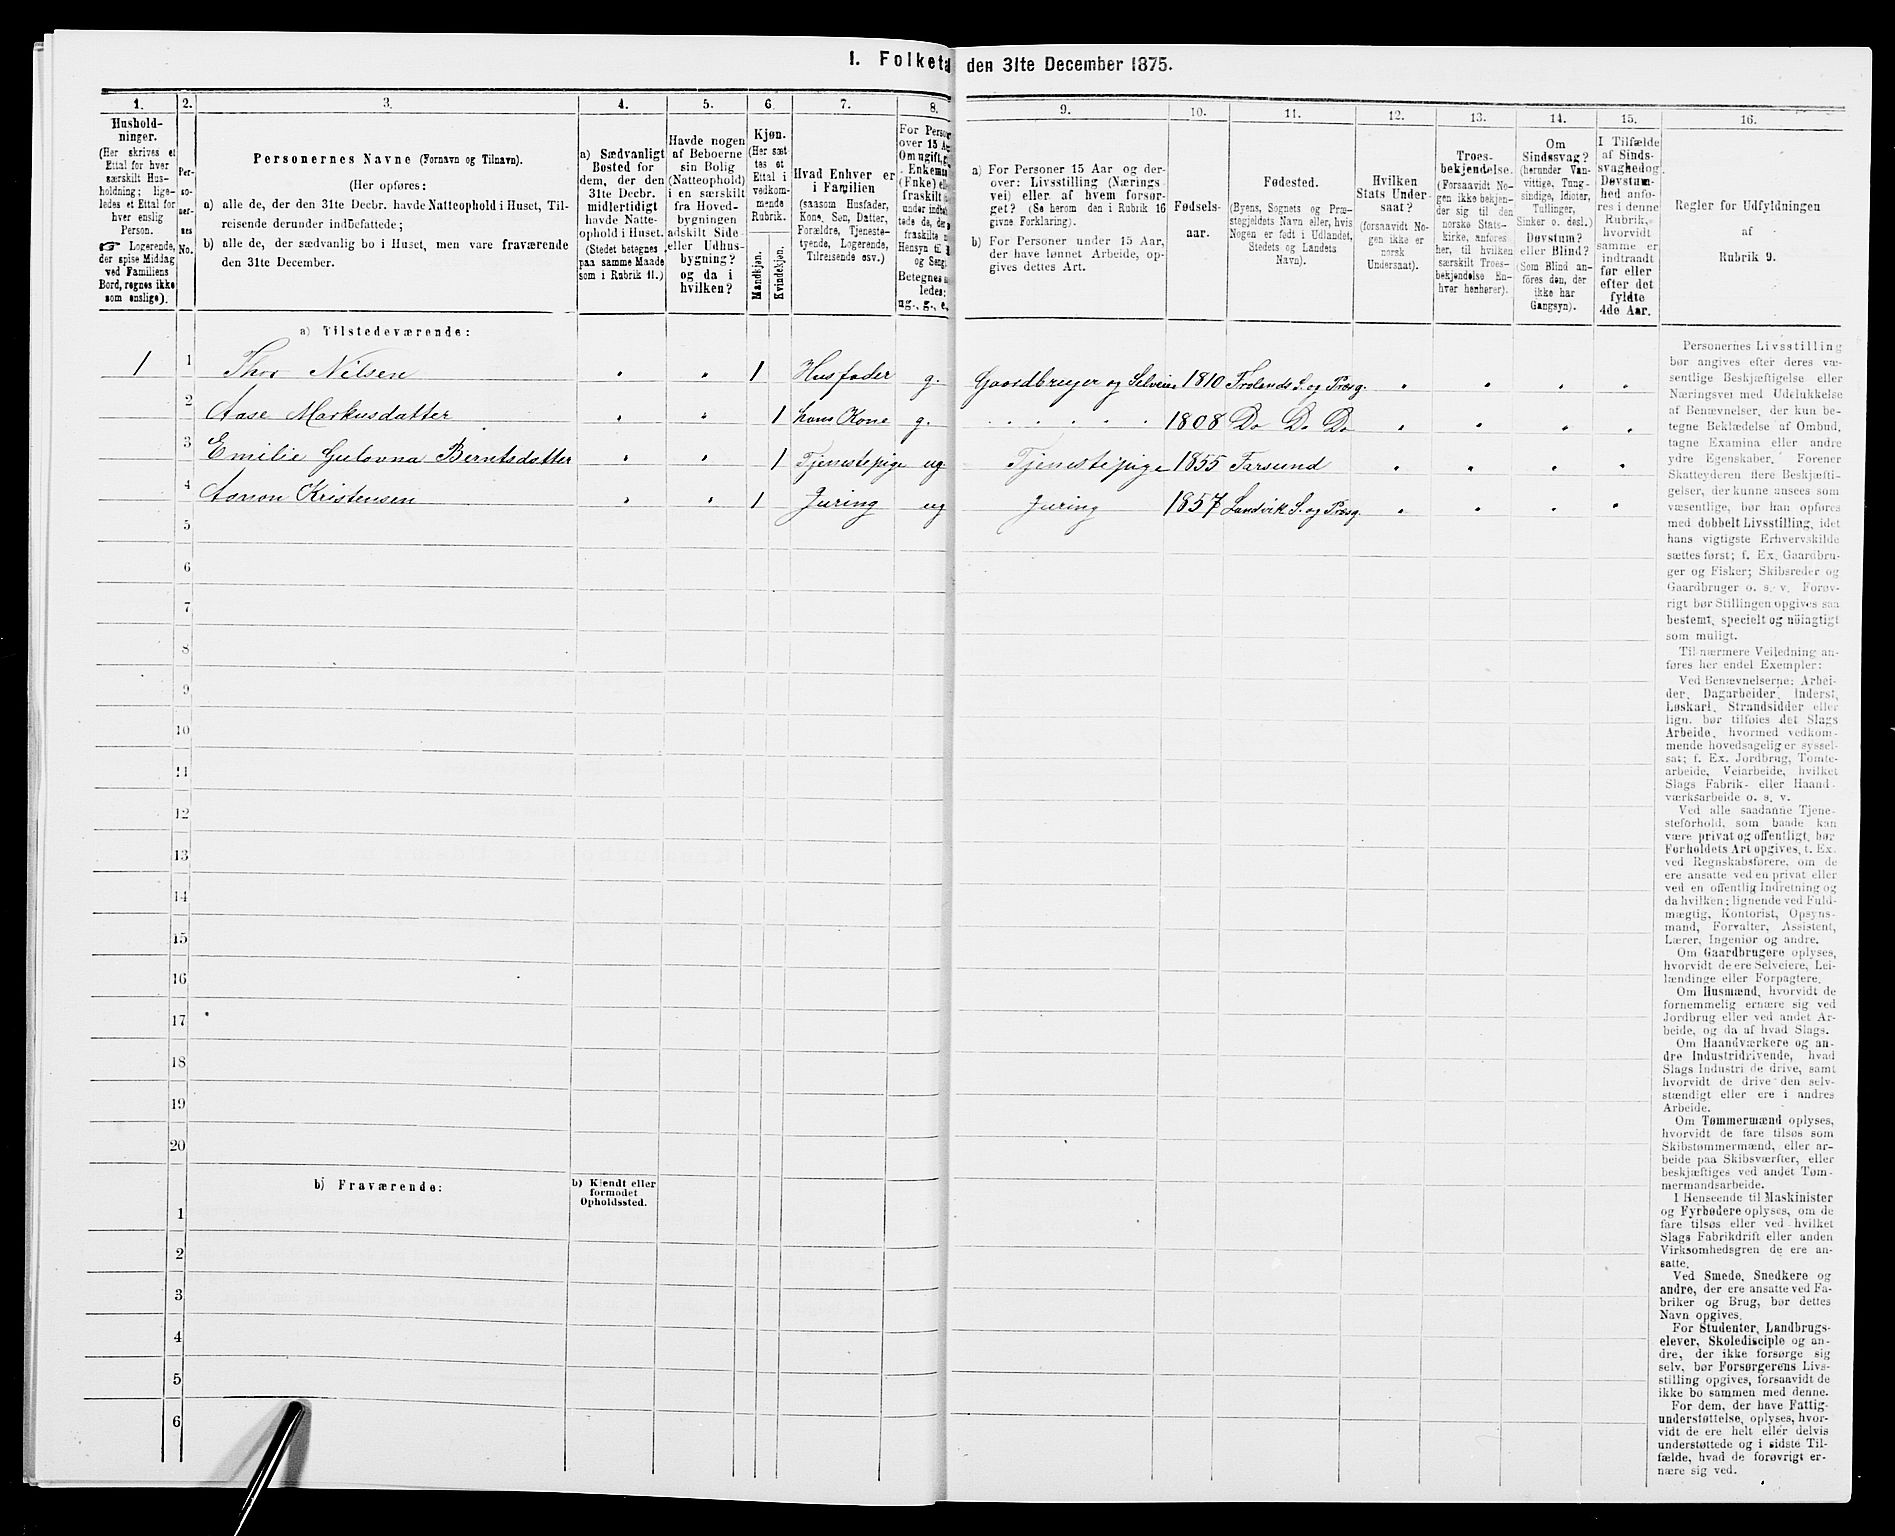 1. Folketal den 31te December 1875.
1.
2.
3.
4.
5.
6.
7.
8.
9.
10.
11.
12.
13.
14.
15.
16.
Hushold-
ninger.
(Her skrives et
Ettal for hver
særskilt Hus-
holdning; lige-
ledes et Ettal for
hver enslig
Person.
☞ Logerende,
der spise Middag
ved Familiens
Bord, regnes ikke
som enslige).
Per-
so-
ner-
nes
No.
Personernes Navne (Fornavn og Tilnavn).
(Her opføres:
a) alle de, der den 31te Decbr. havde Natteophold i Huset, Til-
reisende derunder indbefattede;
b) alle de, der sædvanlig bo i Huset, men vare fraværende
den 31te December.
a) Sædvanligt
Bosted for
dem, der den
31te Decbr.
midlertidigt
havde Natte-
ophold i Huset.
(Stedet betegnes
paa samme Maade
som i Rubrik 11.)
Havde nogen
af Beboerne
sin Bolig
(Natteophold)
i en særskilt
fra Hoved-
bygningen
adskilt Side-
eller Udhus-
bygning?
og da i
hvilken?
Kjøn.
(Her sæt-
tes et
Ettal i
vedkom-
mende
Rubrik.
Mandkjøn.
Kvindekjøn.
Hvad Enhver er
i Familien
(saasom Husfader,
Kone, Søn, Datter,
Forældre, Tjeneste-
tyende, Logerende,
Tilreisende osv.)
For Person
over 15 Aa
Om ugift, g
Enkema
(Enke) el
fraskilt
under indbe
tede de, de
fraskilte
Hensyn til
og Seng.
Betegnes
ledes:
ug., g., e.
a) For Personer 15 Aar og der-
over: Livsstilling (Nærings-
vei) eller af hvem forsør-
get? (Se herom den i Rubrik 16
givne Forklaring).
b) For Personer under 15 Aar,
der have lønnet Arbeide, op-
gives dettes Art.
Fødsels-
aar.
Fødested.
(Byens, Sognets og Præ-
stegjeldets Navn eller, hvis
Nogen er født i Udlandet,
Stedets og Landets
Navn).
Hvilken
Stats Under-
saat?
(forsaavidt No-
gen ikke er
norsk
Undersaat).
Troes-
bekjendelse.
(Forsaavidt No-
gen ikke bekjen-
der sig til den
norske Stats-
kirke, anføres
her, til hvilken
særskilt Troes-
bekjendelse En-
hver henhører).
Om
Sindssvag?
(herunder Van-
vittige, Tung-
sindige, Idioter,
Tullinger,
Sinker o. desl.)
Døvstum?
eller Blind?
(Som Blind an-
føres den, der
ikke har
Gangsyn).
I Tilfælde
af Sinds-
svaghed og
Døvstum-
hed anfø-
res i denne
Rubrik,
hvorvidt
samme er
indtraadt
før eller
efter det
fyldte
4de Aar.
Regler for Udfyldningen
af
Rubrik 9.
a) Tilstedeværende:
1 1 Thor Nilsen " " 1 Husfader g. Gaardbruger og Selveier 1810 Frolands S. og Præsg. " " " "
2 Aase Markusdatter " " 1 hans Kone g. . . . . . 1808 Do Do Do " " " "
3 Emilie Gulovna Berntsdatter " " 1 Tjenestepige ug. Tjenestepige 1855 Farsund " " " "
4 Aanon Kristensen " " 1 ug 1857 Landvik S. og Præsg. " " " "
5
6
7
8
9
10
11
12
13
14
15
16
17
18
19
20
b) Fraværende:
b) Kjendt eller
formodet
Opholdssted.
1
2
3
4
5
6
Personernes Livsstilling
bør angives efter deres væ-
sentlige Beskjæftigelse eller
Næringsvei med Udelukkelse
af Benævnelser, der kun be-
tegne Beklædelse af Ombud,
tagne Examina eller andre
ydre Egenskaber. Forener
Skatteyderen flere Beskjæfti-
gelser, der kunne ansees som
væsentlige, bør han opføres
med dobbelt Livsstilling, idet
hans vigtigste Erhvervskilde
sættes først; f. Ex. Gaardbru-
ger og Fisker; Skibsreder og
Gaardbruger o. s. v. Forøv-
rigt bør Stillingen opgives saa
bestemt, specielt og nøiagtigt
som muligt.
Til nærmere Veiledning an-
føres her endel Exempler:
Ved Benævnelserne: Arbei-
der, Dagarbeider, Inderst,
Løskarl, Strandsidder eller
lign. bør tilføies det Slags
Arbeide, hvormed vedkom-
mende hovedsagelig er syssel-
sat; f. Ex. Jordbrug, Tomte-
arbeide, Veiarbeide, hvilket
Slags Fabrik- eller Haand-
værksarbeide o. s. v.
Ved alle saadanne Tjene-
steforhold, som baade kan
være privat og offentligt, bør
Forholdets Art opgives, f. Ex.
ved Regnskabsførere, om de
ere ansatte ved en privat eller
ved en offentlig Indretning og
da hvilken; lignende ved Fuld-
mægtig, Kontorist, Opsyns-
mand, Forvalter, Assistent,
Lærer, Ingeniør og andre.
Om Gaardbrugere oplyses,
hvorvidt de ere Selveiere, Lei-
lændinge eller Forpagtere.
Om Husmænd, hvorvidt de
fornemmelig ernære sig ved
Jordbrug eller ved andet Ar-
beide, og da af hvad Slags.
Om Haandværkere og an-
dre Industridrivende, hvad
Slags Industri de drive, samt
hvorvidt de drive den selv-
stændigt eller ere i andres
Arbeide.
Om Tømmermænd oplyses,
hvorvidt de fare tilsøs som
Skibstømmermænd, eller ar-
beide paa Skibsværfter, eller
beskjæftiges ved andet Tøm-
mermandsarbeide.
I Henseende til Maskinister
og Fyrbødere oplyses, om de
fare tilsøs eller ved hvilket
Slags Fabrikdrift eller anden
Virksomhedsgren de ere an-
satte.
Ved Smede, Snedkere og
andre, der ere ansatte ved Fa-
briker og Brug, bør dettes
Navn opgives.
For Studenter, Landbrugs-
elever, Skoledisciple og an-
dre, der ikke forsørge sig
selv, bør Forsørgerens Livs-
stilling opgives, forsaavidt de
ikke bo sammen med denne.
For dem, der have Fattig-
understøttelse, oplyses, hvor-
vidt de ere helt eller delvis
understøttede og i sidste Til-
fælde, hvad de forøvrigt er-
nære sig ved.